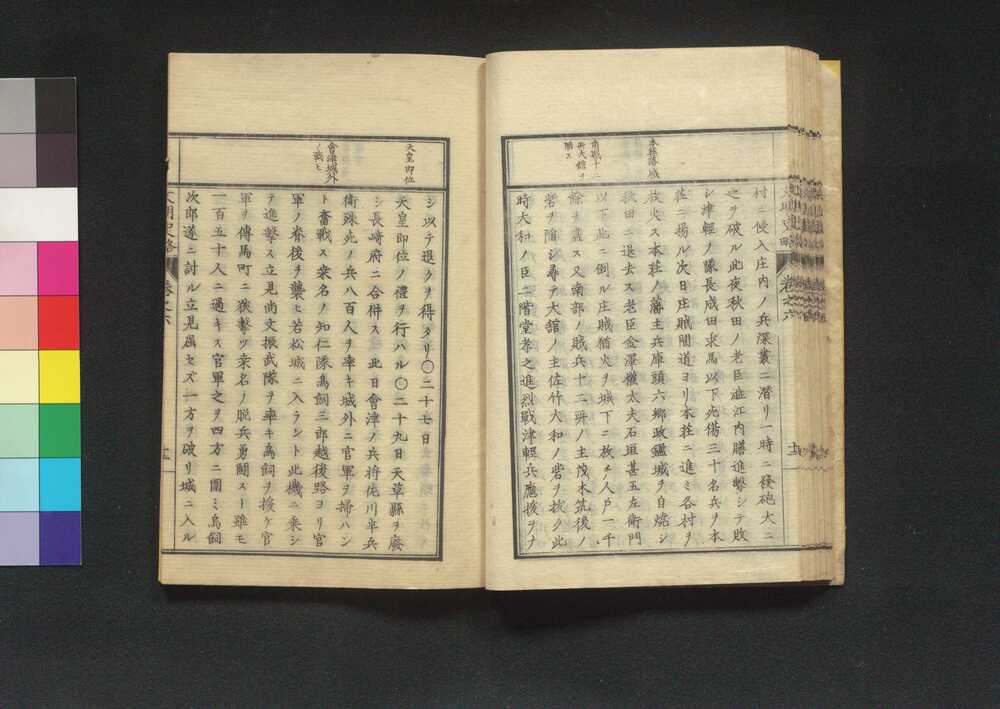 本荘落城
南戦十二
兵大舘ヲ
陥ス
村ニ侵入庄内ノ兵深叢ニ潜リ一時ニ發砲大ニ
之ヲ破ル此夜秋田ノ老臣澁江内膳進撃シテ敗
シ津輕ノ隊長成田求馬以下死傷三十名兵ヲ本
荘ニ揚ル次日庄賊間道ヨリ本荘ニ進ミ各村ヲ
放火ス本荘ノ藩主兵庫頭六郷政鑑城ヲ自焼シ
秋田ニ退去ス老臣金澤權太夫石垣甚五左衛門
以下此ニ倒ル庄賊猶火ヲ城下ニ放チ人戸一千
餘ヲ盡ス又南部ノ賊兵十二所ノ主茂木筑後ノ
砦ヲ陥シ尋テ大舘ノ主佐竹大和ノ砦ヲ抜ク此
時大和ノ臣二階堂孝之進烈戦津輕兵應援ヲナ
文明史略 卷之六
天皇即位
會津城外
ノ戰ヒ
シ以テ退クヲ得タリ〇二十七日
天皇即位ノ禮ヲ行ハル〇二十九日天草縣ヲ廢
シ長﨑府ニ合併ス 此日會津ノ兵將佐川半兵
衛殊死ノ兵八百人ヲ率キ城外ニ官軍ヲ掃ハン
ト奮戦ス桒名ノ知仁隊爲飼三郎越後路ヨリ官
軍ノ脊後ヲ襲ヒ若松城ニ入ラント此機ニ乘シ
テ進撃ス立見尚文振武隊ヲ率キ爲飼ヲ援ケ官
軍ヲ傳馬町ニ狹撃ツ桒名ノ脱兵勇鬪スト雖モ
一百五十人ニ過キス官軍之ヲ四方ニ圍ミ爲飼
次郎遂ニ討ル立見屈セズ一方ヲ破リ城ニ入ル
文明史略 卷之六